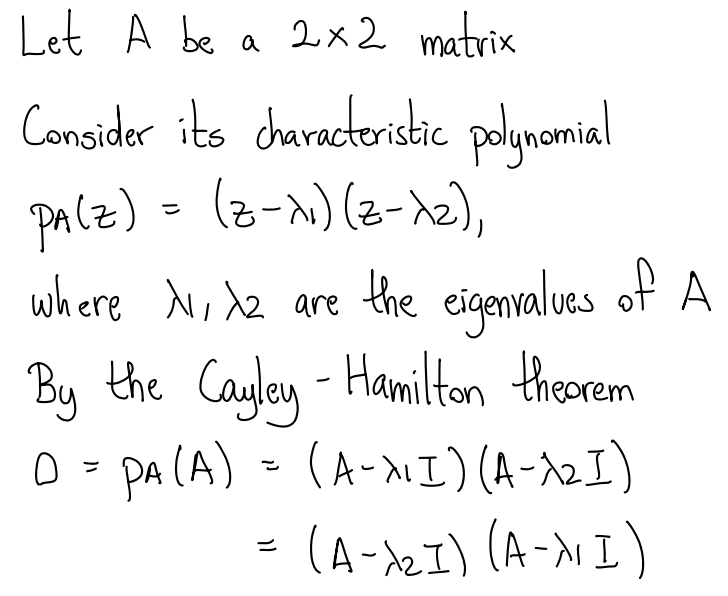 Let A be a 2×2 matrix
Consider its characteristic polynomial
p_A(z) = (z-λ_1)(z-λ_2),
where λ_1, λ_2 are the eigenvalues of A
By the Cayley-Hamilton theorem
0 = p_A(A) = (A-λ_1I)(A-λ_2I)
= (A-λ_2I)(A-λ_1I)